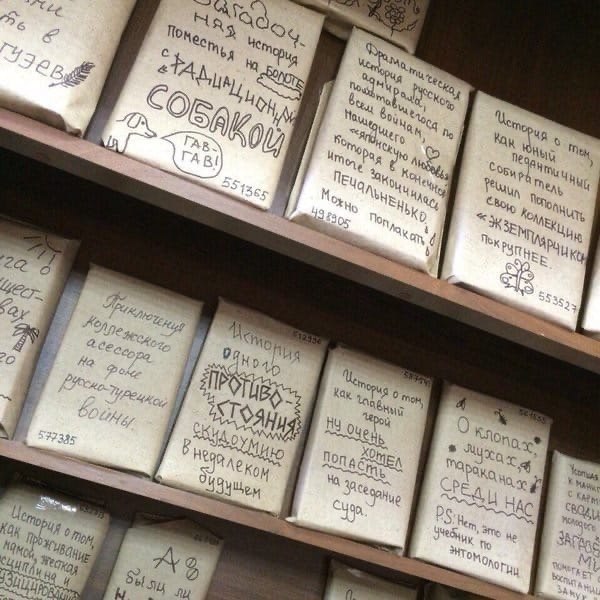 ть в
Загадоч-
ная история
поместья на БОЛОТЕ
с «РАДИАЦИОННОЙ»
СОБАКОЙ
ГАВ-
ГАВ!
551365
Драматическая
история русского
адмирала,
помотавшегося по
всем войнам,
нашедшего
«японскую любовь»
которая в конечном
итоге закончилась
ПЕЧАЛЬНЕНЬКО.
Можно поплакать
498905
История о том,
как юный
педантичный
собиратель
решил пополнить
свою коллекцию
«ЭКЗЕМПЛЯРЧИКОМ
ПОКРУПНЕЕ.
553527
Приключения
коллежского
асессора
на фоне
русско-турецкой
войны.
577385
История
одного
ПРОТИВО
СТОЯНИЯ
СКУДОУМИЮ
в недалеком
будущем
История о том,
как главный
герой
ну очень
хотел
попасть
на заседание
суда.
О клопах,
мухах,
тараканах
СРЕДИ НАС
P.S: Нет, это не
учебник по
энтомологии
История о том,
как проживание
с мамой, жесткая
А
были ли